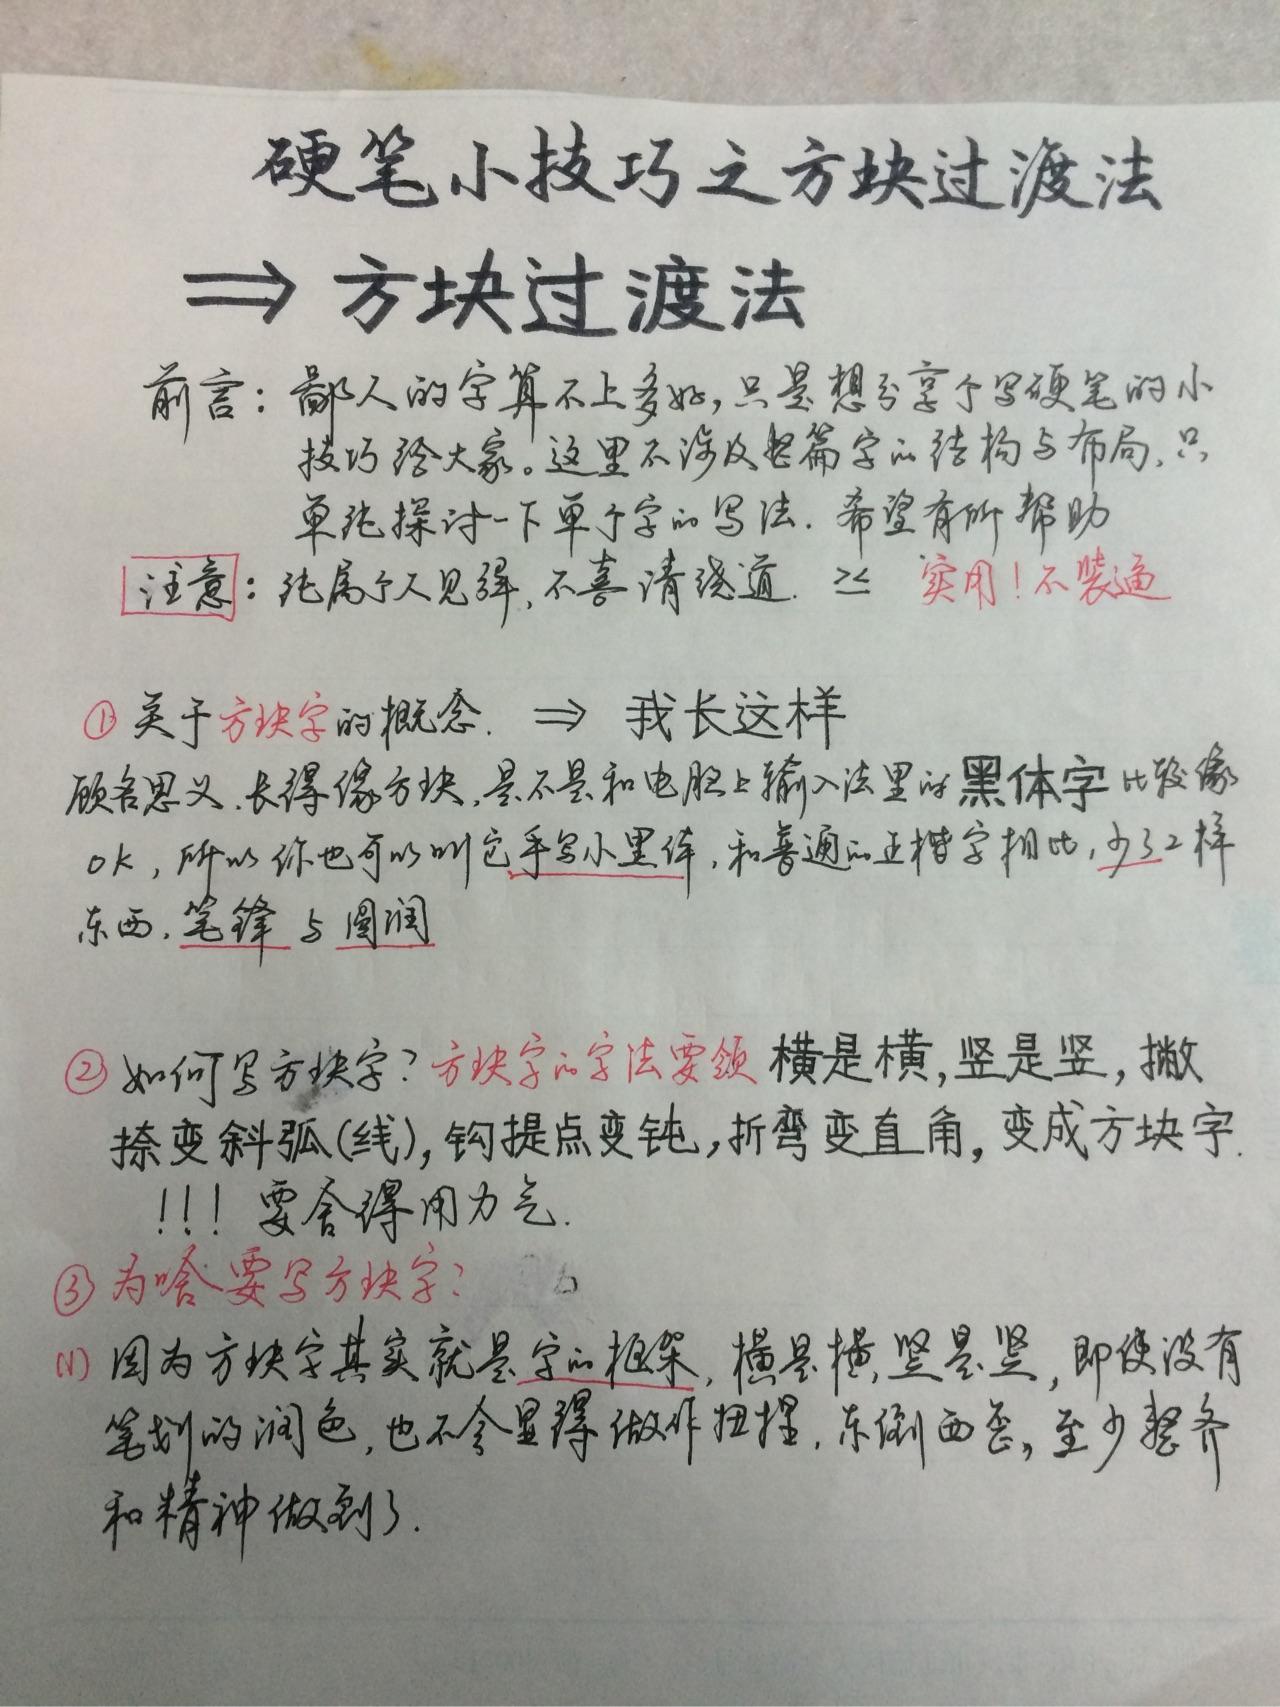 硬笔小技巧之方块过渡法
⇒ 方块过渡法
前言：鄙人的字算不上多好，只是想分享个写硬笔的小
技巧给大家。这里不涉及整篇字的结构与布局，只
单纯探讨一下单个字的写法．希望有所帮助
注意：纯属个人见解，不喜请绕道． ≥≤ 实用！不装逼
① 关于方块字的概念． ⇒ 我长这样
顾名思义．长得像方块，是不是和电脑上输入法里的黑体字比较像
OK，所以你也可以叫它手写小黑体，和普通的正楷字相比，少了2样
东西．笔锋与圆润
② 如何写方块字？方块字的字法要领 横是横，竖是竖，撇
捺变斜弧(线)，钩提点变钝，折弯变直角，变成方块字．
!!! 要舍得用力气．
③ 为啥要写方块字？
(1) 因为方块字其实就是字的框架，横是横，竖是竖，即使没有
笔划的润色，也不会显得做作扭捏，东倒西歪，至少整齐
和精神做到了．